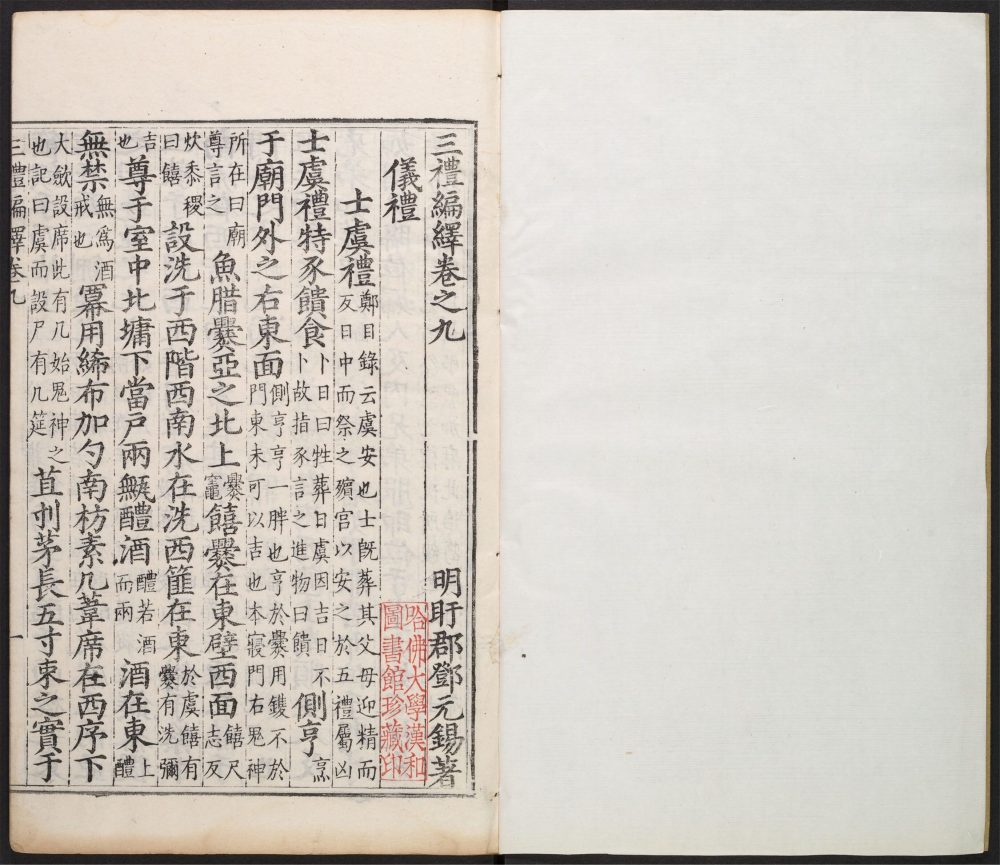 三禮編繹卷之九
明盱郡鄧元錫著
儀禮
哈佛大學漢和
圖書館珍藏印
士虞禮鄭目錄云虞安也士既葬其父母迎精而
反日中而祭之殯宮以安之於五禮屬凶
士虞禮特豕饋食卜日曰牲葬日虞因吉日不
卜故指豕言之進物曰饋側亨烹
于廟門外之右東面側亨亨一胖也亨於爨用鑊不於
門東未可以吉也本寢門右鬼神
所在曰廟
尊言之魚腊爨亞之北上爨
竈饎爨在東壁西面饎尺
志反
炊黍稷
曰饎設洗于西階西南水在洗西篚在東於虞饎有
爨有洗彌
吉
也尊于室中北墉下當戶兩甒醴酒醴若酒
而兩酒在東上
醴
無禁無為酒
戒也冪用絺布加勺南枋素几葦席在西序下
大斂設席此有几始鬼神之
也記曰虞而設尸有几筵苴刌茅長五寸束之實于
三禮編繹卷九
一